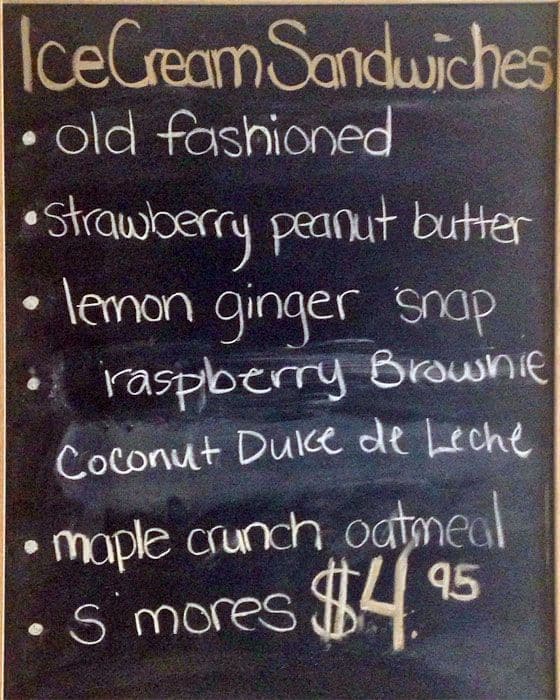 Ice Cream Sandwiches
• old fashioned
• strawberry peanut butter
• lemon ginger snap
• raspberry Brownie
Coconut Dulce de Leche
• maple crunch oatmeal
• s'mores $4.95